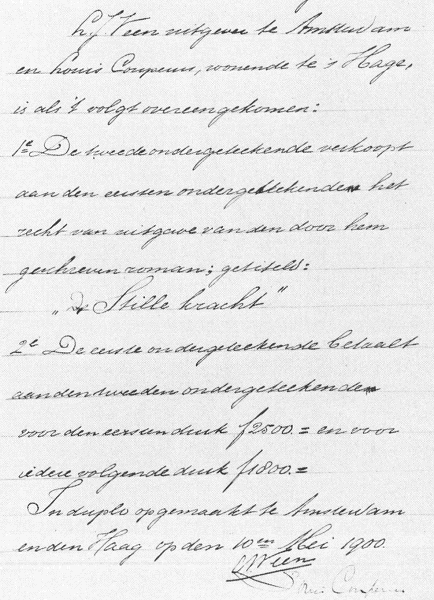 L. J. Veen uitgever te Amsterdam
en Louis Couperus, wonende te 's Hage,
is als 't volgt overeengekomen:
1e De tweede ondergeteekende verkoopt
aan den eersten ondergeteekenden het
recht van uitgave van den door hem
geschreven roman; getiteld:
"De Stille kracht"
2e De eerste ondergeteekende betaalt
aan den tweeden ondergeteekende
voor den eersten druk f2500.= en voor
iedere volgende druk f1800.=
In duplo opgemaakt te Amsterdam
en den Haag op den 10en Mei 1900.
LJVeen
Louis Couperus